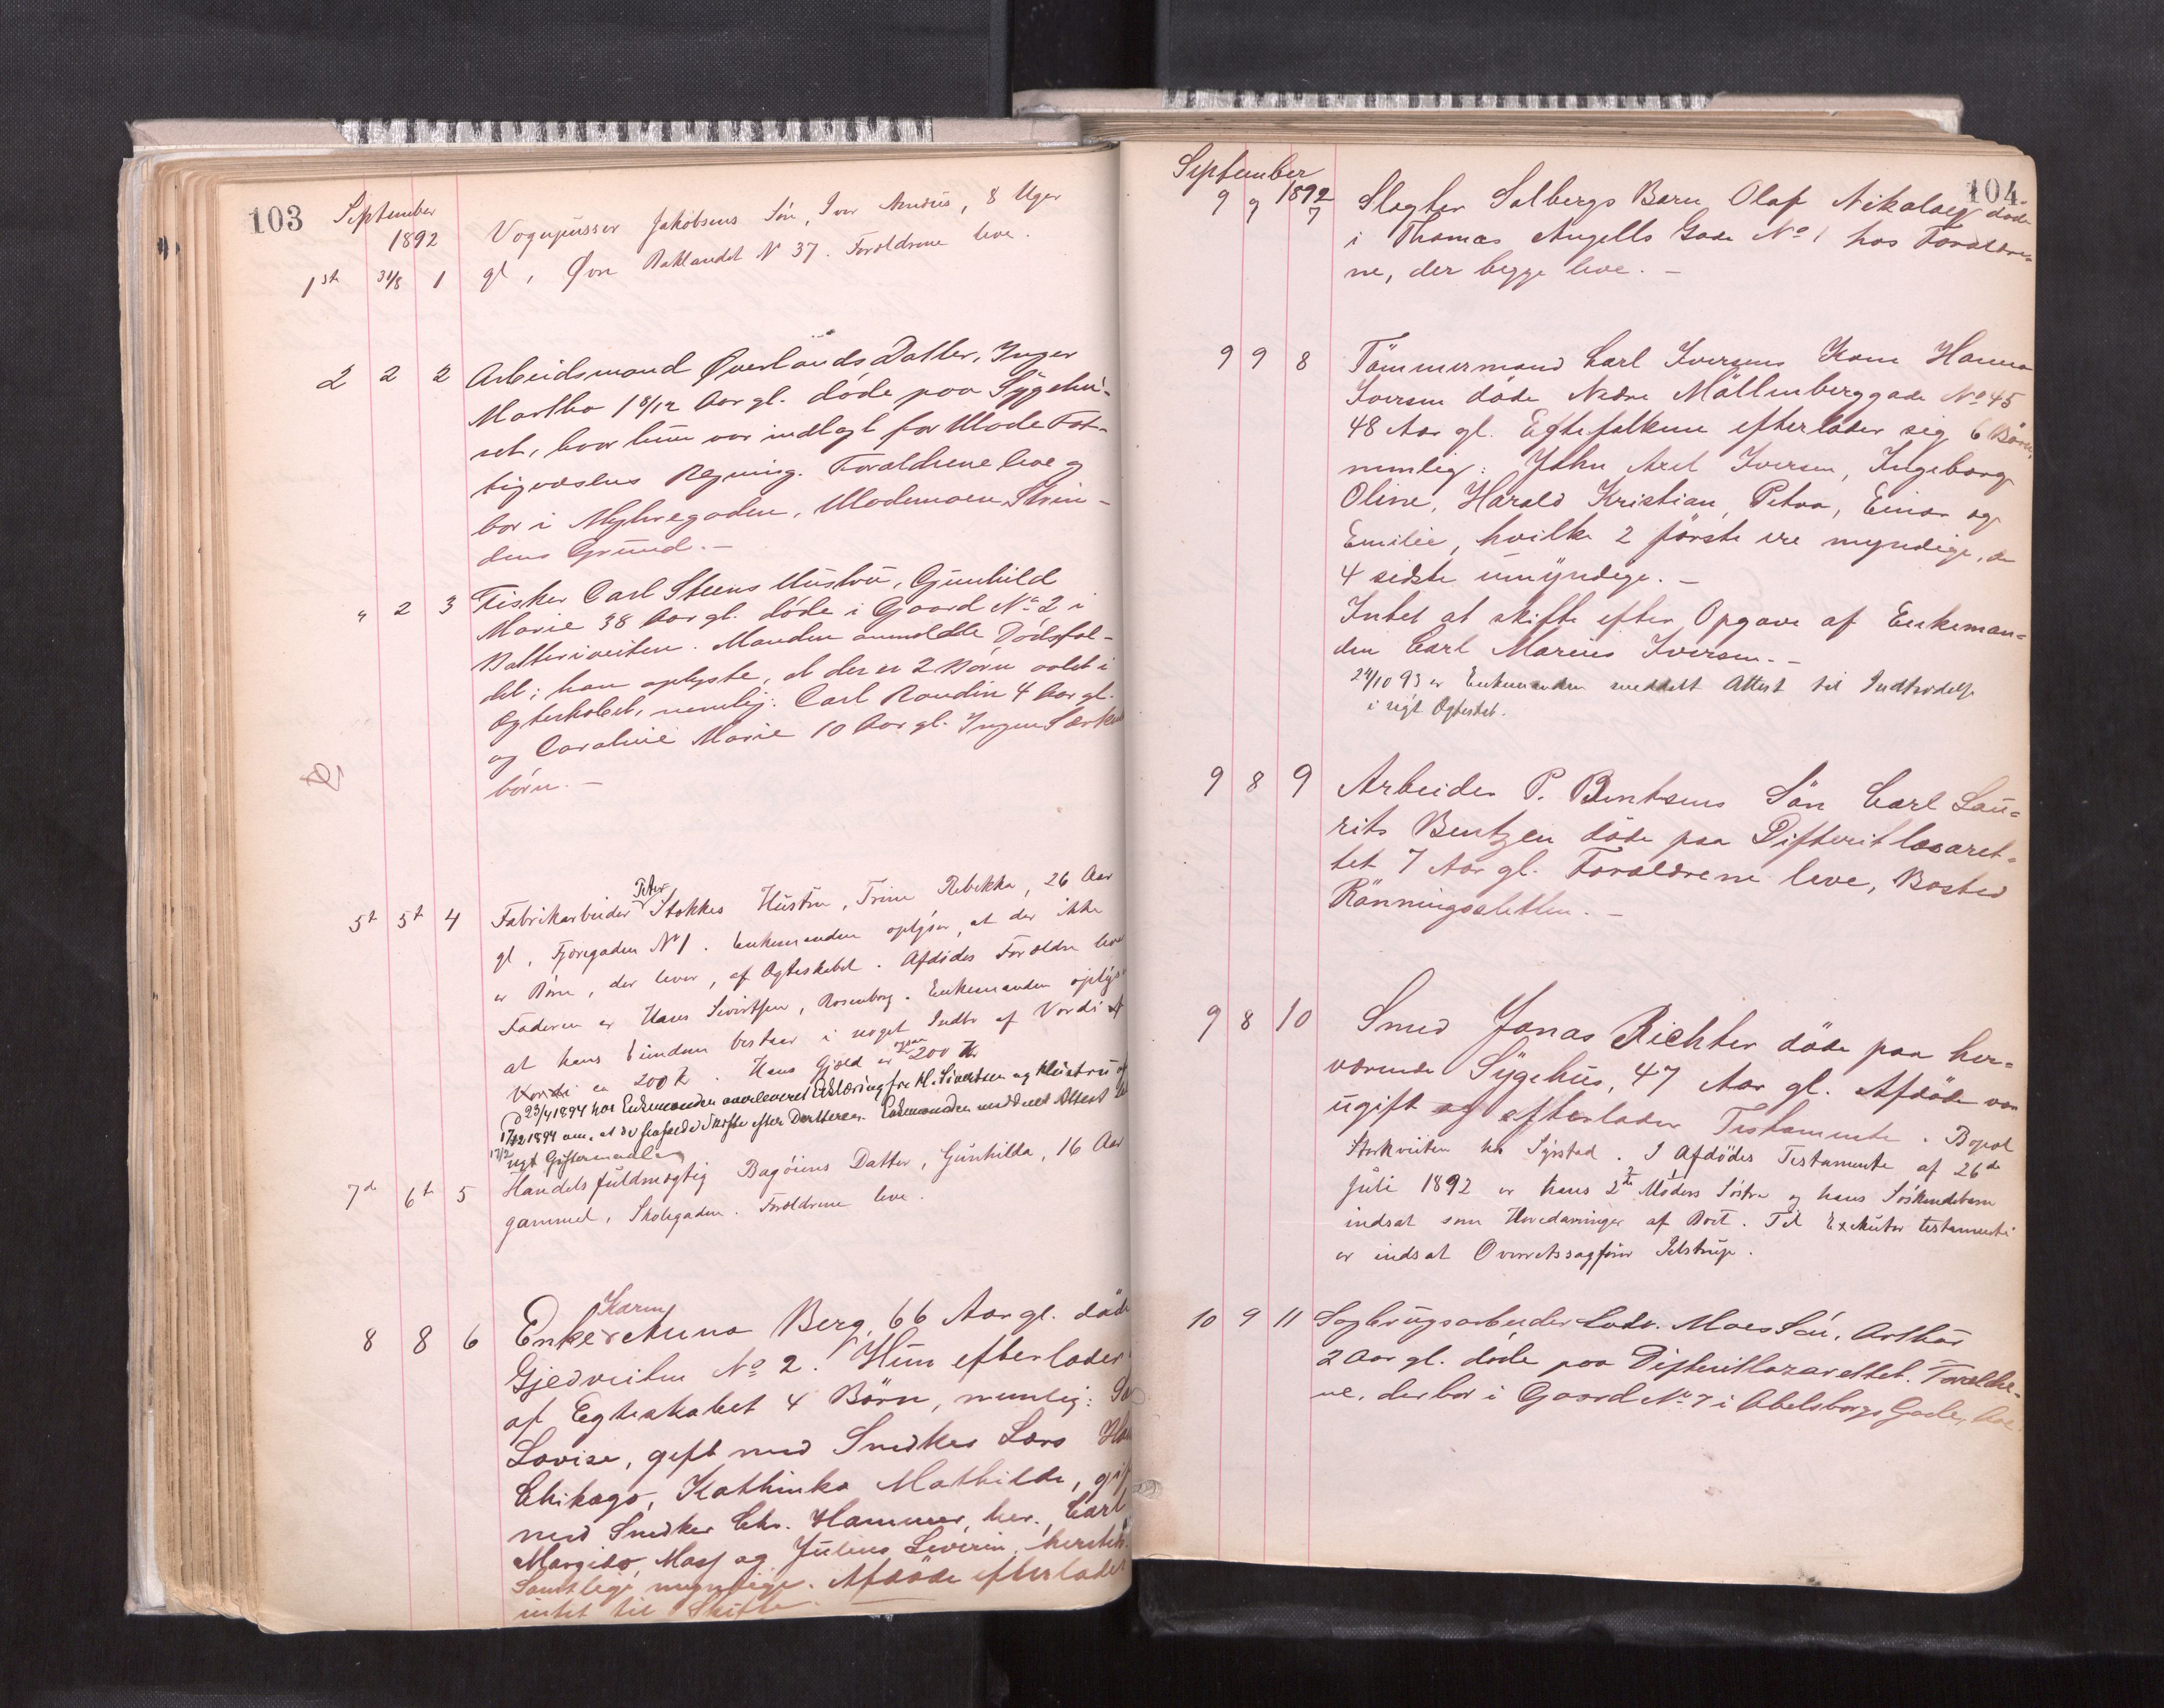 103 September
1892 Vognpusser Jakobsens Søn, Ivar , 8 Uger
1st 31/8 1 gl, Øvre Baklandet N 37. Forældrene leve.
2 2 2 Arbeidsmand Øverlands Datter, Inger
Martha 1 8/12 Aar gl. døde paa Sygehu-
set, hvor hun var indlagt for Strinde Fat-
tigvæsens Regning. Forældrene leve og
bor i Myhregaden, Strin-
dens Grund. –
" 2 3 Fisker Carl Steens Hustru, Gunhild
Marie 38 Aar gl. døde i Gaard No 2 i
Batteriveiten. Manden anmeldte Dødsfal-
det; han oplyste, at der er 2 Børn avlet i
Ægteskabet, nemlig: Carl Randin 4 Aar gl.
og Caroline Marie 10 Aar gl. Ingen Særkuld
børn. –
5t 5t 4 Fabrikarbeider Peter Stokkes Hustru, Trine Rebekka, 26 Aar
gl, Fjæregaden No 1. Enkemanden oplyser, at der ikke
er Børn, der lever, af Ægteskabet. Afdødes Forældre leve
Faderen er Hans Sivertsen, Rosenborg. Enkemanden oplyser
at hans Eiendom bestaar i noget Indbo af Værdi af
Værdi ca 200 K. Hans Gjæld er ogsaa 200 Kr
23/4 1894 har Enkemanden overleveret Erklæring fra H. Sivertsen og Hustru af
17/2 1894 om, at de frafalde Skifte efter Datteren. Enkemanden meddelt Attest til
17/2 nyt Giftermaal
7d 6t 5 Handelsfuldmægtig Bagøiens Datter, Gunhilda, 16 Aar
gammel, Skolegaden. Forældrene leve.
8 8 6 Enke Karen Anna Berg, 66 Aar gl. døde
Gjedveiten No 2. Hun efterlader
af Egteskabet 4 Børn, nemlig:
Lovise, gift med Snedker Lars
Chikago, Kathinka Mathilde, gift
med Snedker Chr. Hammer, her., Carl
Margido, Moss og Julius Severin, hersteds.
Samtlige myndige. Afdøde efterlader
intet til Skifte.
September 104
9 9 1892 7 Slagter Solbergs Barn Olaf Nikolay døde
i Thomas Angells Gade No 1 hos Forældre=
ne, der begge leve. –
9 9 8 Tømmermand Carl Iversens Kone Hanna
Iversen døde Nedre Möllenberggade No 45
48 Aar gl. Egtefolkene efterlader sig 6 Børn,
nemlig: John Axel Iversen, Ingeborg
Oline, Harald Kristian, Petra, Einar og
Emilie, hvilke 2 første ere myndige, de
4 sidste umyndige. –
Intet at skifte efter Opgave af Enkeman=
den Carl Marius Iversen. –
24/10 93 er Enkemanden meddelt Attest til Indtrædelse
i nyt Ægteskab.
9 8 9 Arbeider P. Bentsens Søn Carl Lau=
rits Bentzen døde paa Difteritlasaret=
tet 7 Aar gl. Forældrene leve, Bosted
Rønningsletten. –
9 8 10 Smed Jonas Richter døde paa her=
værende Sygehus, 47 Aar gl. Afdøde var
ugift og efterlader Testamente. Bopæl
hos Syrstad. I Afdødes Testamente af 26de
Juli 1892 er hans 2de Moders Søstre og hans Søskendebarn
indsat som Hovedarvinger af Boet. Til Exekutor testamenti
er indsat Overretssagfører Jelstrup.
10 9 11 Sagbrugsarbeider Ludv. Moes Søn, Arthur
2 Aar gl. døde paa Difteritlazarettet. Forældre-
ne, der bor i Gaard No 7 i Abelsborgs Gade, leve.